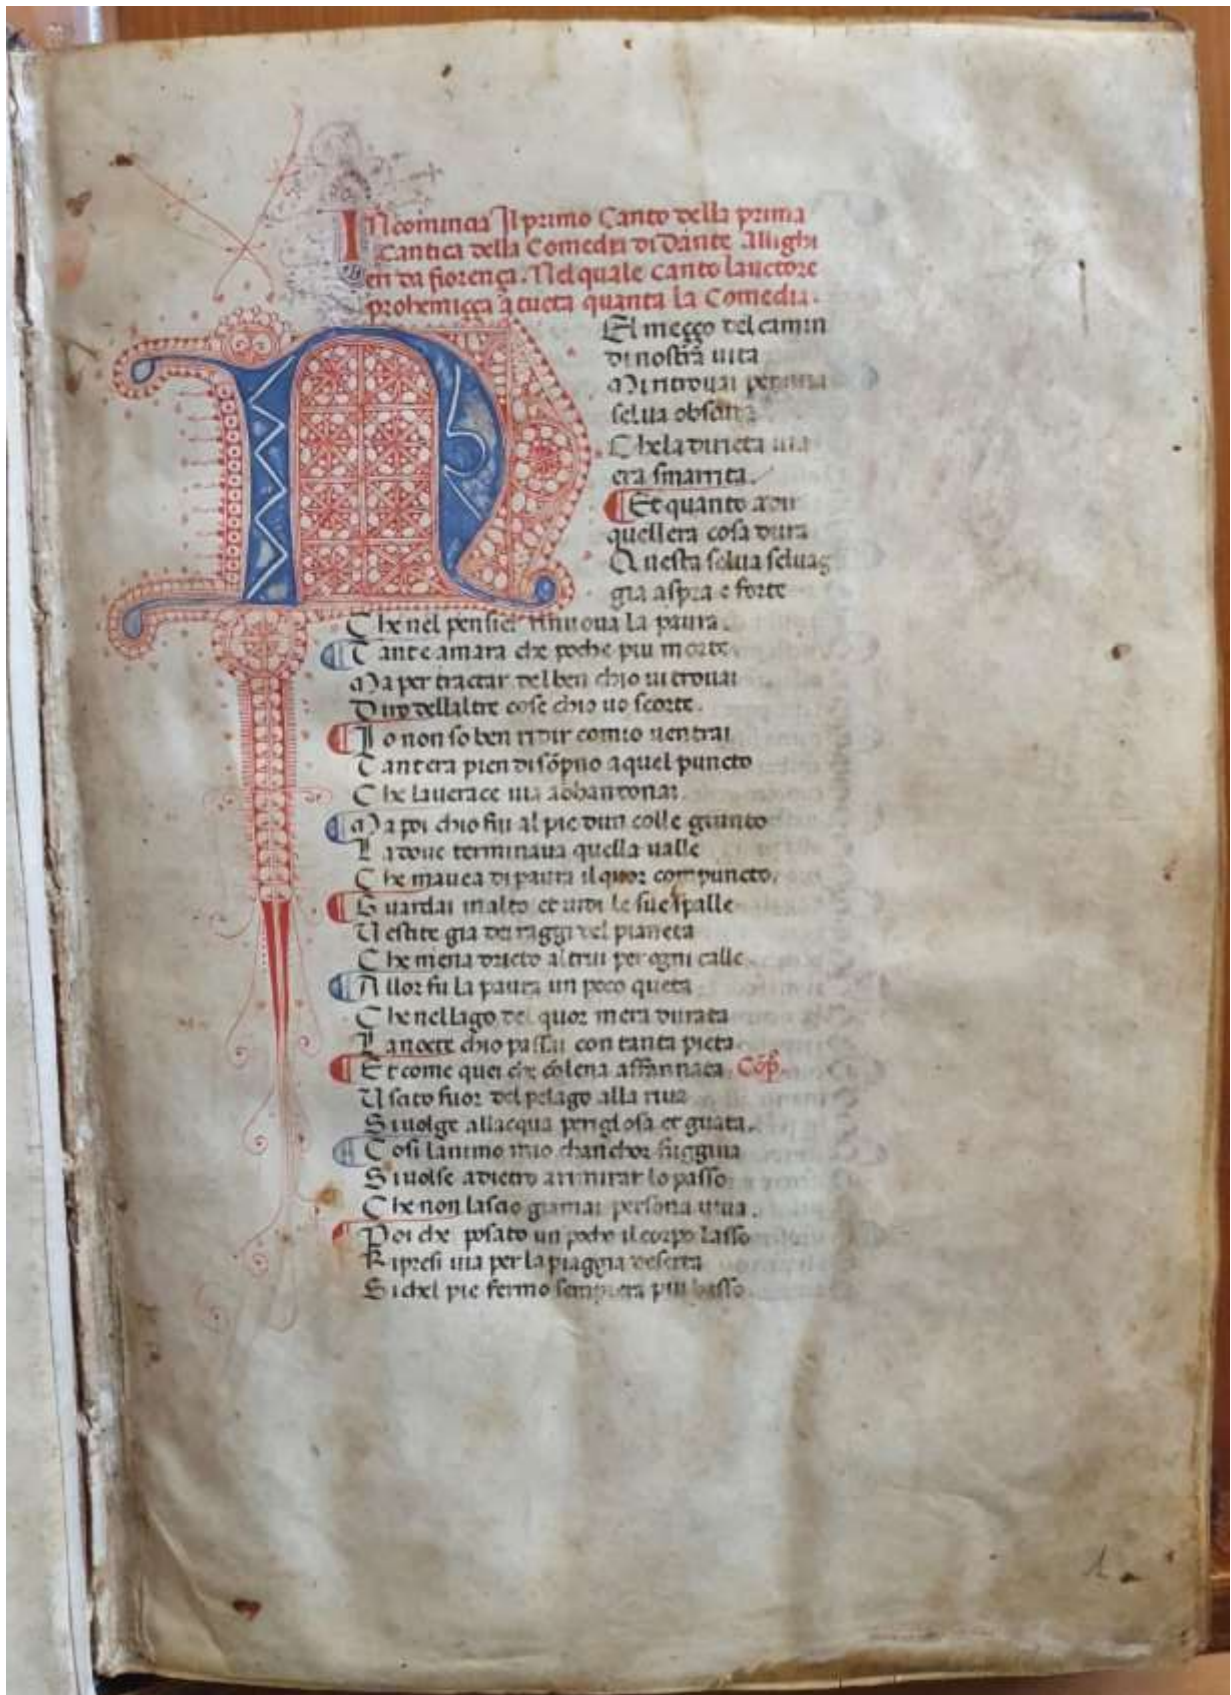 INcomincia Il primo Canto della prima
Cantica della Comedia di Dante Allighi
eri da fiorença. Nel quale canto lauctore
prohemiçça a tucta quanta la Comedia.
NEl meçço del camin
di nostra uita
Mi ritrouai per una
selua obscura
Che la diricta uia
era smarrita.
Et quanto a dir
quellera cosa dura
Questa selua seluag
gia aspra e forte
Che nel pensier rinuoua la paura.
Tante amara che poche piu morte
Ma per tractar del ben chio ui trouai
Diro dellaltre cose chio uo scorte.
Io non so ben ridir comio uentrai
Tantera pien di sōpno a quel puncto
Che lauerace uia abbandonai.
Ma poi chio fui al pie dun colle giunto
La doue terminaua quella ualle
Che mauea di paura il quor compuncto.
Guardai in alto et uidi le sue spalle
Uestite gia de raggi del pianeta
Che mena dricto altrui per ogni calle.
Allor fu la paura un poco queta
Che nellago del quor mera durata
La nocte chio passai con tanta pieta
Et come quei che cō lena affannata Cōp.
Uscito fuor del pelago alla riua
Si uolge allacqua periglosa et guata.
Cosi lanimo mio chanchor fuggiua
Si uolse adietro a rimirar lo passo
Che non lascio giamai persona uiua.
Poi che posato un pocho il corpo lasso
Ripresi uia per la piaggia deserta
Si chel pie fermo semprera piu basso